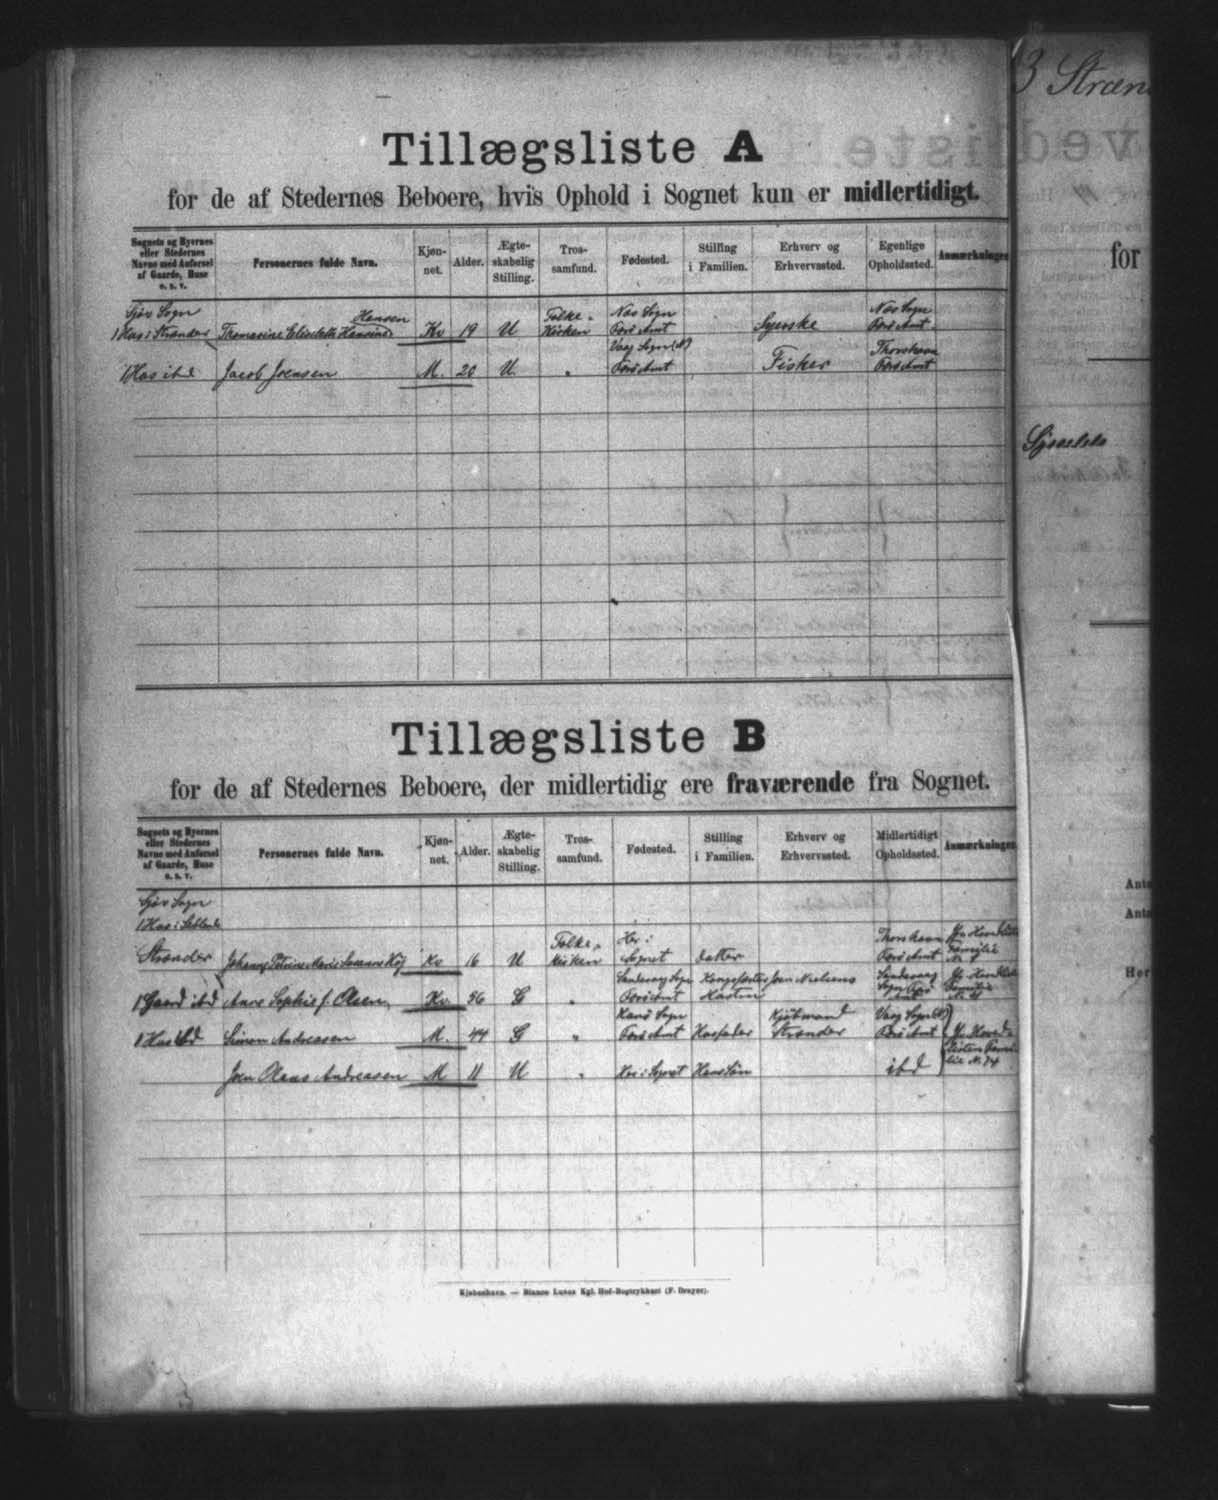 Tillægsliste A
for de af Stedernes Beboere, hvis Ophold i Sognet kun er midlertidigt.
Sognets og Byernes eller Stedernes Navne med Anførsel af Gaarde, Huse o. s. v.
Personernes fulde Navn.
Kjønnet.
Alder.
Ægteskabelig Stilling.
Trossamfund.
Fødested.
Stilling i Familien.
Erhverv og Erhvervssted.
Egenlige Opholdssted.
Anmærkninger
Sjóv Sogn
1 Hus i Strænder Thomasine Elisabeth Hansen Kv 19 U Folkekirken Næs Sogn Færø Amt Syerske Næs Sogn Færø Amt
1 Hus ibd Jacob Joensen M. 20 U. " Vaag Sogn (N) Færø Amt Fisker Thorshavn Færø Amt
Tillægsliste B
for de af Stedernes Beboere, der midlertidig ere fraværende fra Sognet.
Sognets og Byernes eller Stedernes Navne med Anførsel af Gaarde, Huse o. s. v.
Personernes fulde Navn.
Kjønnet.
Alder.
Ægteskabelig Stilling.
Trossamfund.
Fødested.
Stilling i Familien.
Erhverv og Erhvervssted.
Midlertidigt Opholdssted.
Anmærkninger
Sjóv Sogn
1 Hus i
Strænder Kv 16 U Folkekirken Her i Sognet Datter Thorshavn Færø Amt
1 Gaard ibd Anne Sophie f. Olsen Kv 56 G " Sandevaag Sogn Færø Amt Joen Nielsens Sandevaag Sogn
1 Hus ibd Simon Andreasen M. 44 G " Sogn Færø Amt Husfader Kjøbmand Strænder Vaag Sogn (N) Færø Amt
Joen Olaus Andreasen M 11 U " Her i Sognet Hans Søn ibd
Kjøbenhavn. — Bianco Lunos Kgl. Hof-Bogtrykkeri (F. Dreyer).
3
for